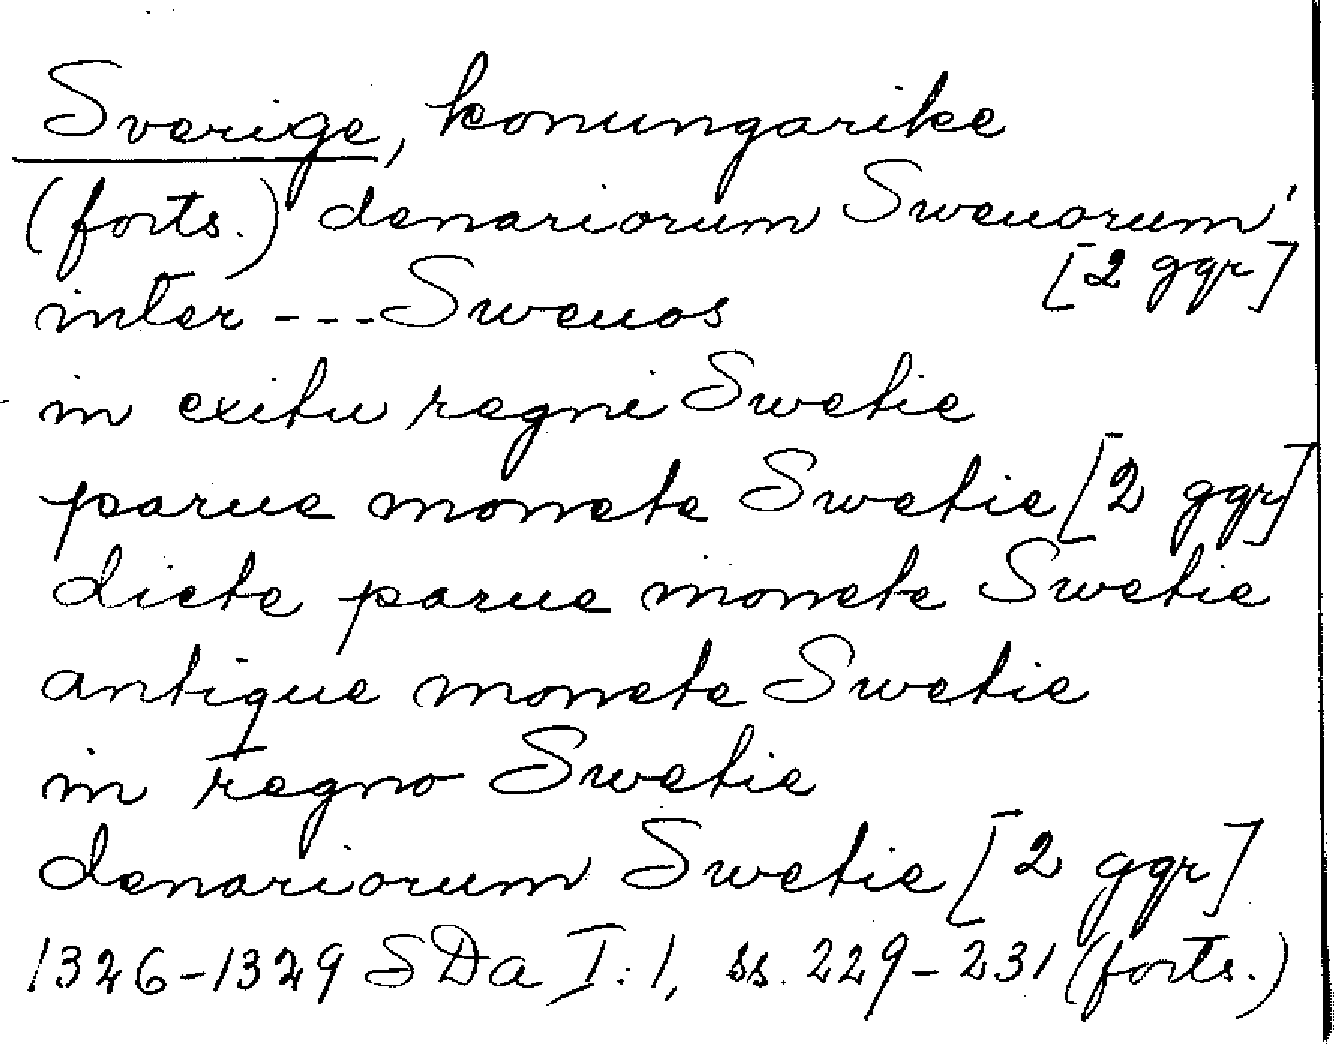 Sverige, konungarike
(forts.) denariorum Sweuorum
[2 ggr]
inter --- Sweuos
in exitu regni Swetie
parue monete Swetie [2 ggr]
dicte parue monete Swetie
antique monete Swetie
in regno Swetie
denariorum Swetie [2 ggr]
1326-1329 SDa I:1, ss. 229-231 (forts.)